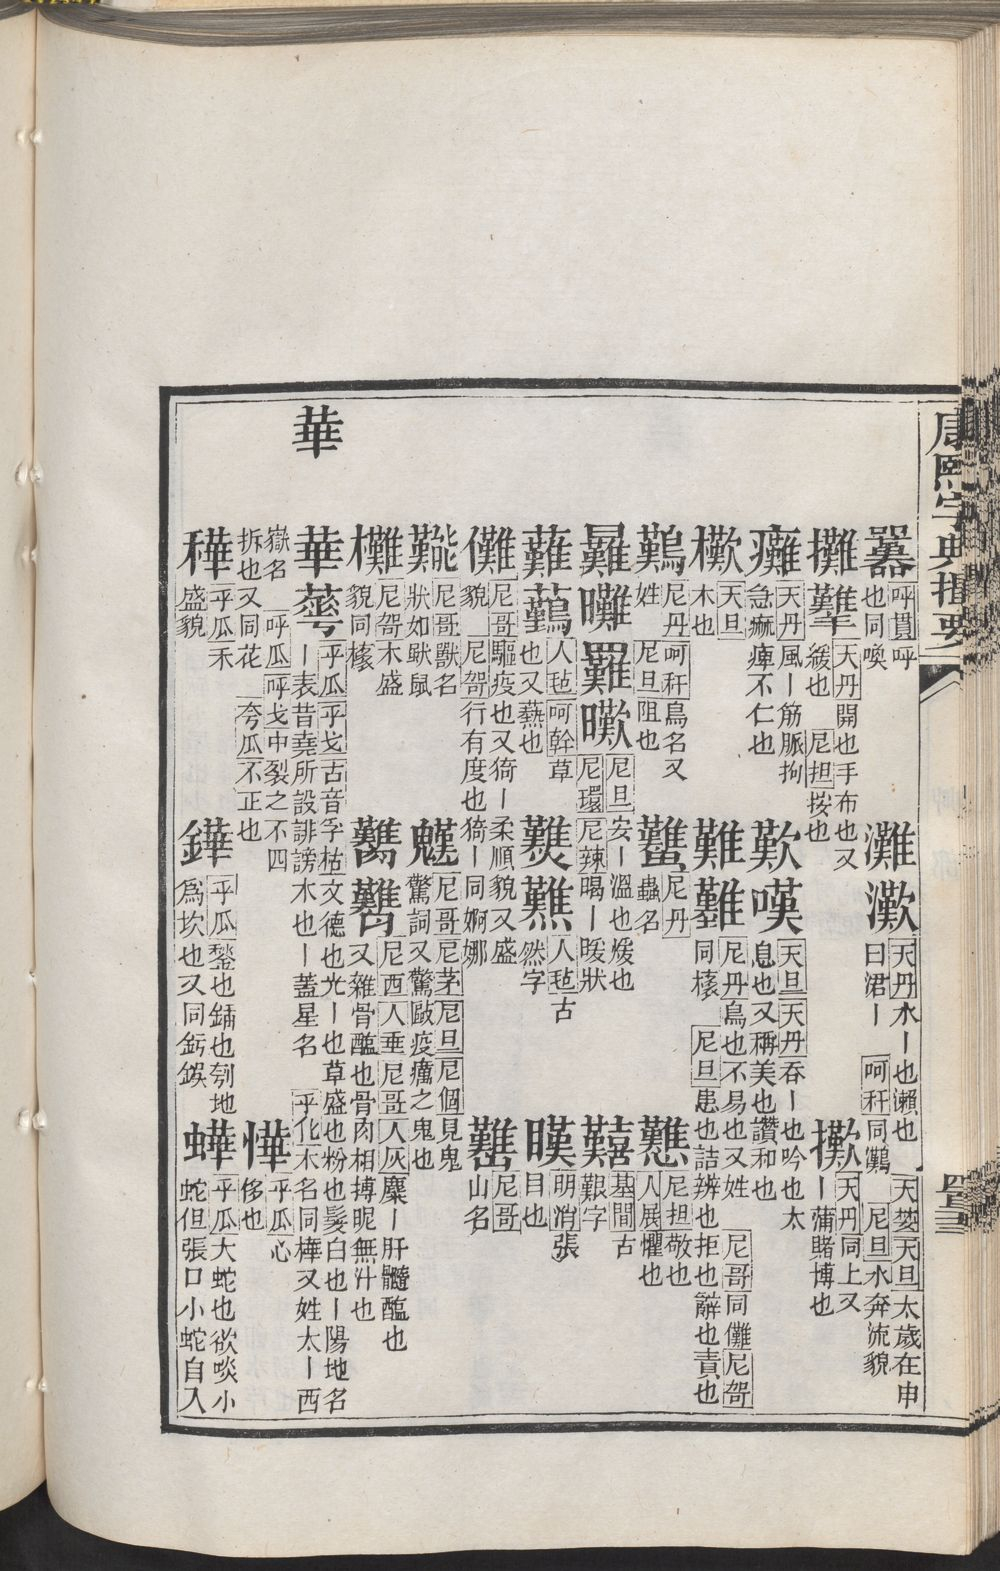 康熙字典撮要
囂 呼貫呼也同喚 灘灘 天丹水ー也瀨也 天旦太歲在申曰涒ー 呵秆同鸂 尼旦水奔流貌
攤 天丹開也手布也又緩也 尼担按也 攤 天丹同上又ー蒲賭博也
癱 天丹風ー筋脈拘急痲痺不仁也 歎嘆 天旦天丹吞ー也吟也太息也又稱美也讚和也
天旦木也 難 尼丹鳥也不易也又姓 尼哥同儺尼哿同橠 尼旦患也詰辨也拒也辭也責也
鷬 尼丹呵秆鳥名又姓 尼旦阻也 尼丹蟲名 戁 尼担敬也人展懼也
尼旦安ー溫也煖也 尼環尼辣暍ー暖狀 囏 基間古艱字
人毡呵幹草也又爇也 人毡古然字 暵 明消張目也
儺 尼哥驅疫也又猗ー柔順貌又盛貌 尼哿行有度也猗ー同婀娜
尼哥獸名狀如鼣鼠 魌 尼哥尼茅尼旦尼個見鬼驚詞又驚敺疫癘之鬼也 尼哥山名
尼哿木盛貌同橠 尼西人垂尼哥人灰麋ー肝髓醢也又雜骨醢也骨肉相摶昵無汁也
華
華 乎瓜乎戈古音孚枯文德也光ー也草盛也粉也髮白也ー陽地名ー表昔堯所設誹謗木也ー蓋星名 乎化木名同樺又姓太ー西嶽名 呼瓜呼戈中裂之不四拆也又同花 夸瓜不正也 㦊 乎瓜心侈也
䅿 乎瓜禾盛貌 鏵 乎瓜鍫也鋪也刳地爲坎也又同釫鋘 蟕 乎瓜大蛇也欲啖小蛇但張口小蛇自入